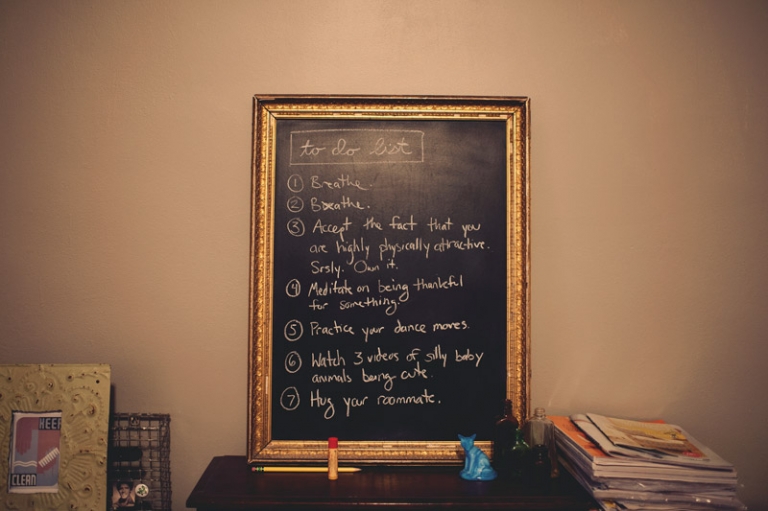 to do list
① Breathe.
② Breathe.
③ Accept the fact that you
are highly physically attractive.
Srsly. Own it.
④ Meditate on being thankful
for something.
⑤ Practice your dance moves.
⑥ Watch 3 videos of silly baby
animals being cute.
⑦ Hug your roommate.
KEEP
CLEAN